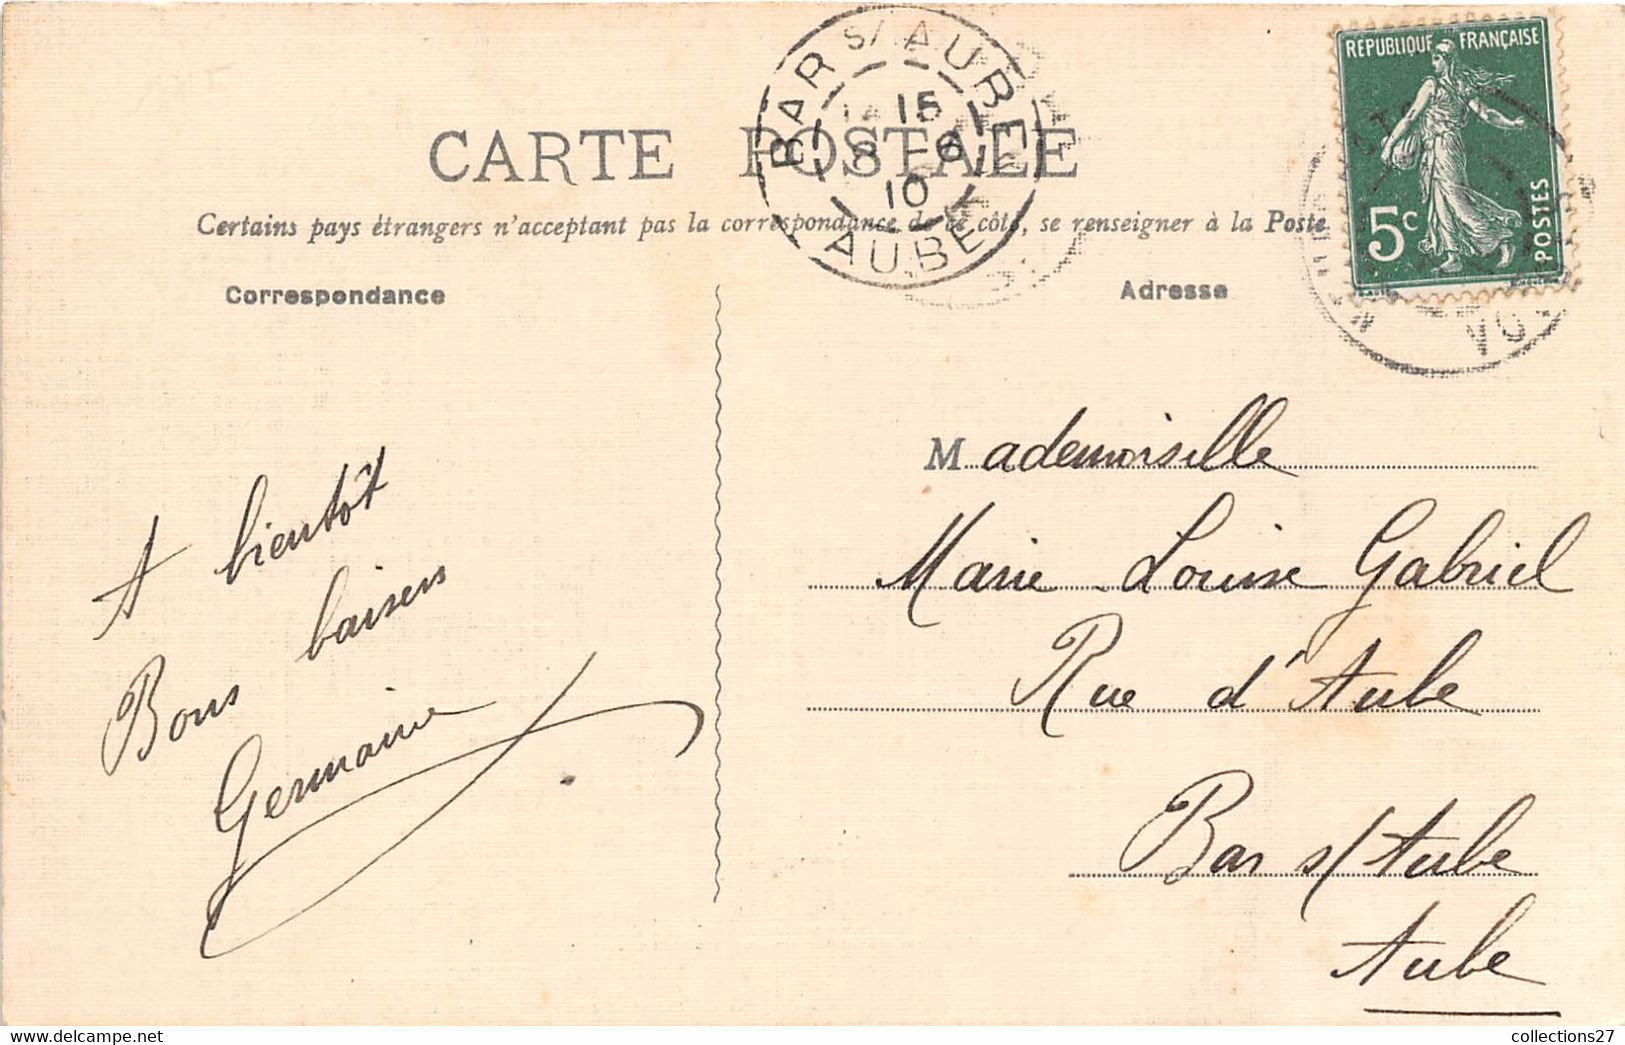 CARTE POSTALE
Certains pays étrangers n'acceptent pas la correspondance de ce côté, se renseigner à la Poste
Correspondance
Adresse
BAR S/ AUBE
15
8 - 6
10
AUBE
RÉPUBLIQUE FRANÇAISE
5c
POSTES
A bientôt
Bons baisers
Germaine
Mademoiselle
Marie-Louise Gabriel
Rue d'Aube
Bar s/ Aube
Aube
collections27